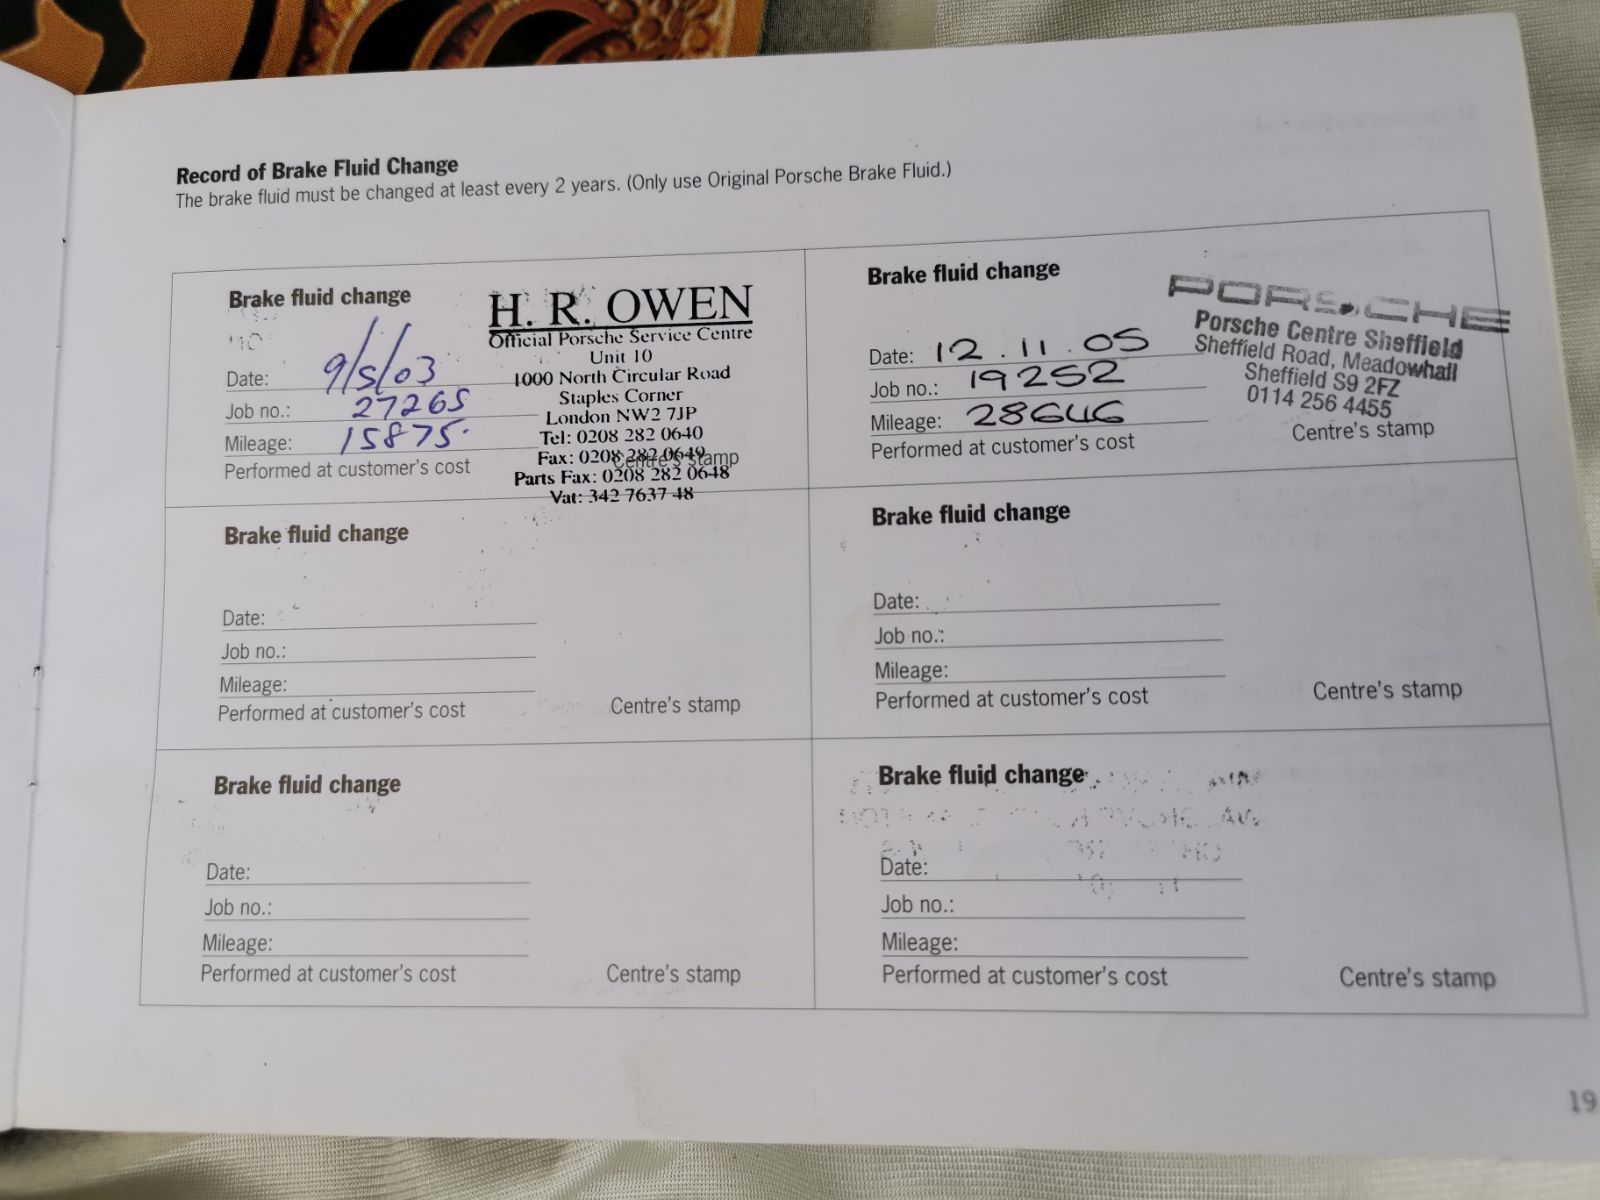 Record of Brake Fluid Change
The brake fluid must be changed at least every 2 years. (Only use Original Porsche Brake Fluid.)
Brake fluid change
Date: 9/5/03
Job no.: 27265
Mileage: 15875.
Performed at customer's cost
H. R. OWEN
Official Porsche Service Centre
Unit 10
1000 North Circular Road
Staples Corner
London NW2 7JP
Tel: 0208 282 0640
Fax: 0208 282 0649
Centre's stamp
Parts Fax: 0208 282 0648
Vat: 342 7637 48
Brake fluid change
Date: 12.11.05
Job no.: 19252
Mileage: 28646
Performed at customer's cost
PORSCHE
Porsche Centre Sheffield
Sheffield Road, Meadowhall
Sheffield S9 2FZ
0114 256 4455
Centre's stamp
Brake fluid change
Date:
Job no.:
Mileage:
Performed at customer's cost
Centre's stamp
Brake fluid change
Date:
Job no.:
Mileage:
Performed at customer's cost
Centre's stamp
Brake fluid change
Date:
Job no.:
Mileage:
Performed at customer's cost
Centre's stamp
Brake fluid change
Date:
Job no.:
Mileage:
Performed at customer's cost
Centre's stamp
19